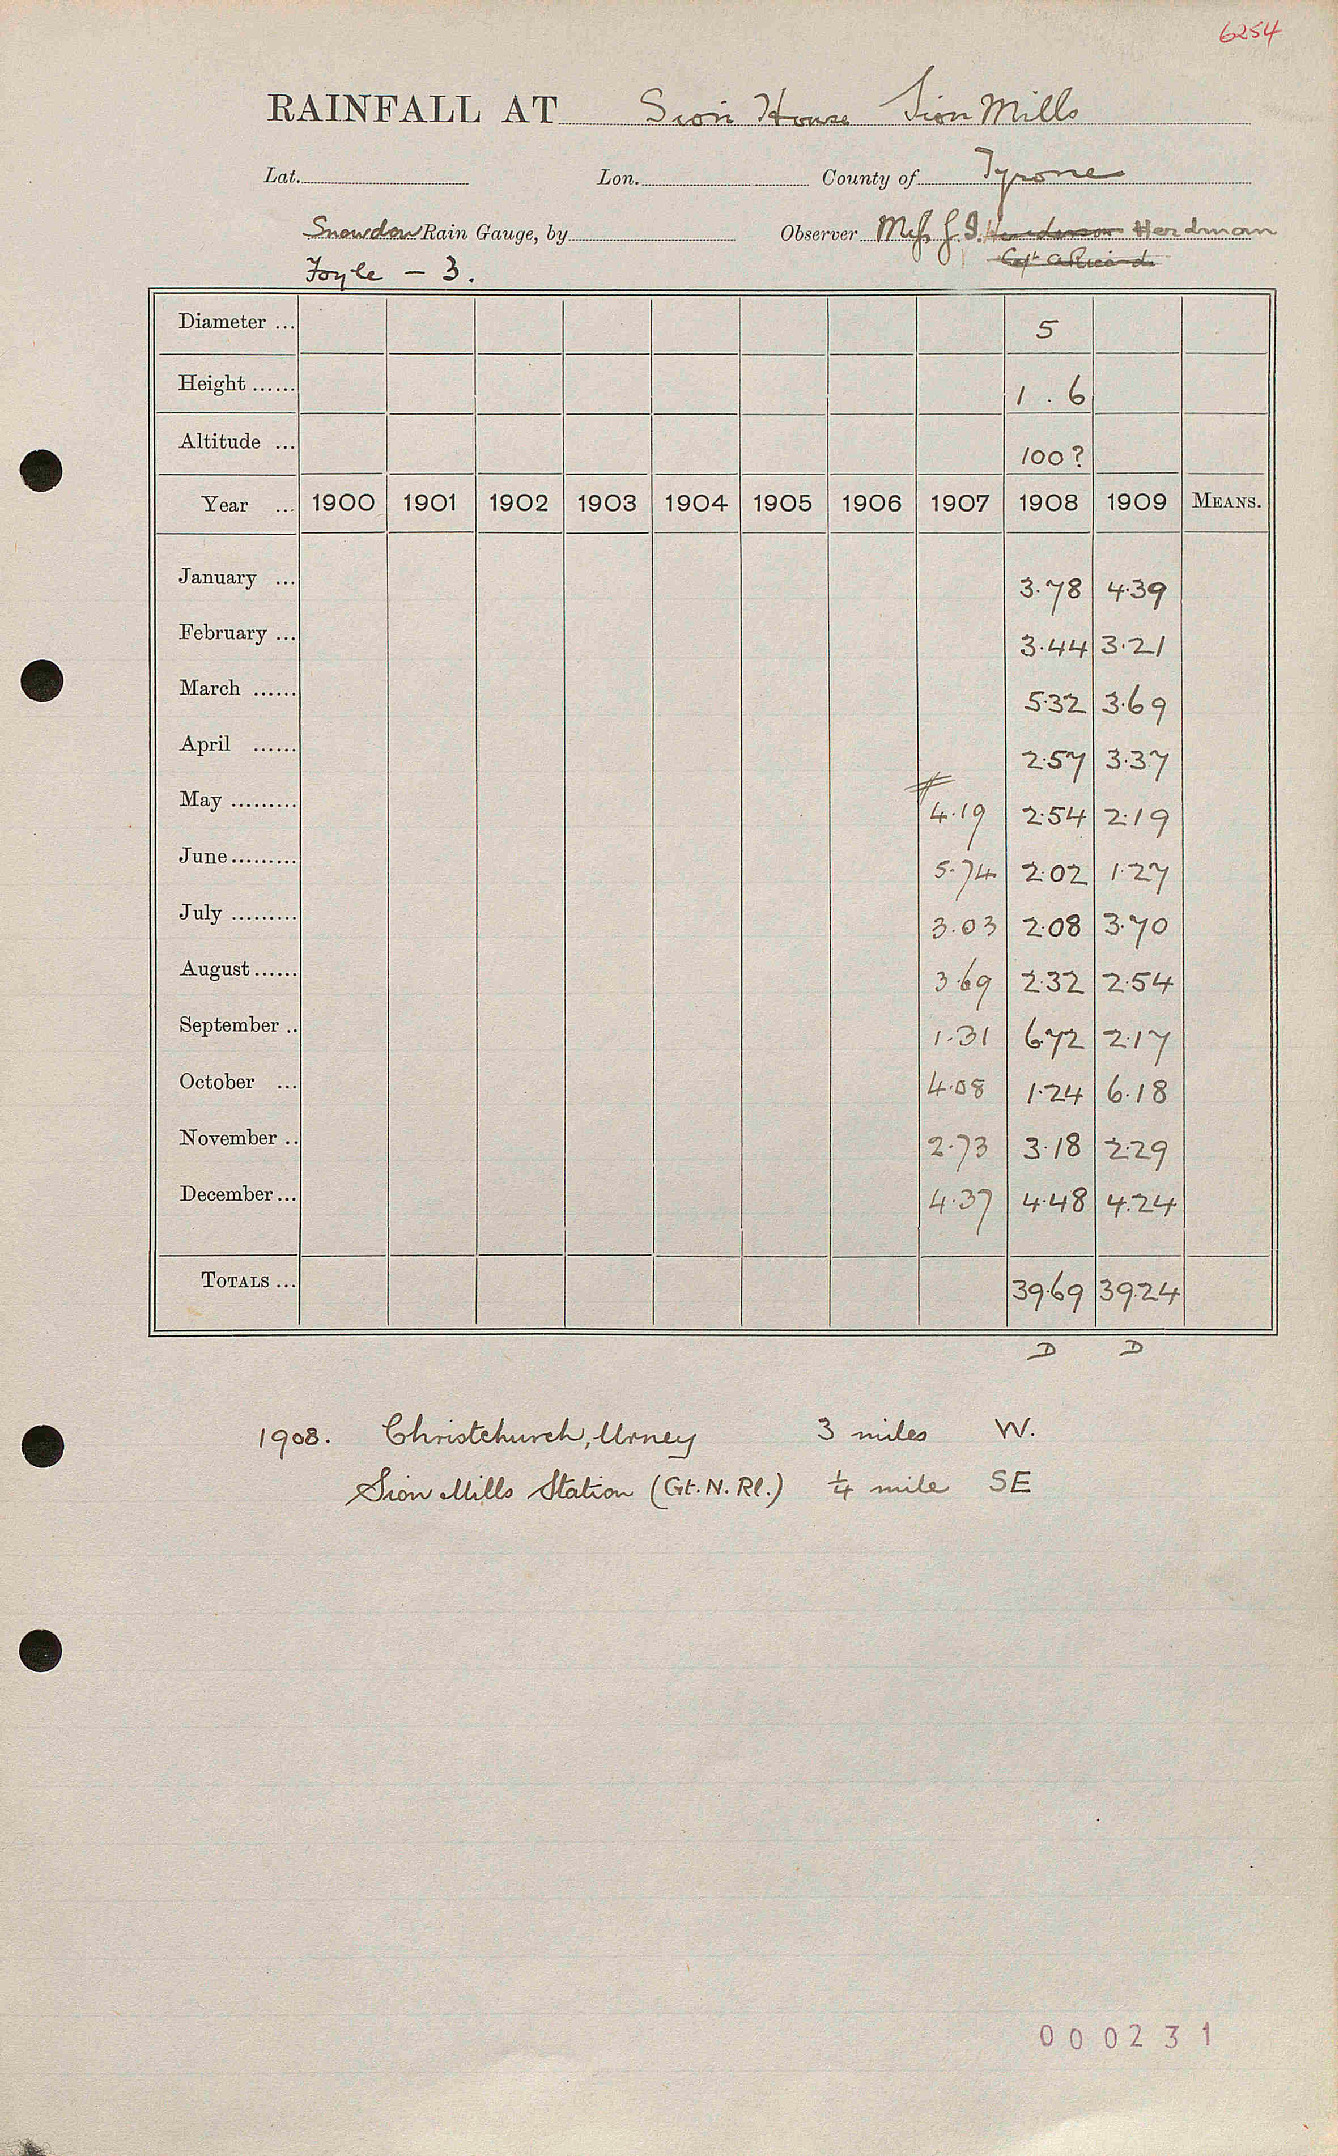 6254
RAINFALL AT Sion House Sion Mills
Lat. Lon. County of Tyrone
Snowdon Rain Gauge, by Observer Miss J. S. Henderson Herdman
Foyle - 3.
Diameter ... 5
Height ...... 1 . 6
Altitude ... 100?
Year ... 1900 1901 1902 1903 1904 1905 1906 1907 1908 1909 MEANS.
January ... 3.78 4.39
February ... 3.44 3.21
March ...... 5.32 3.69
April ...... 2.57 3.37
May ......... 4.19 2.54 2.19
June ......... 5.74 2.02 1.27
July ......... 3.03 2.08 3.70
August ...... 3.69 2.32 2.54
September .. 1.31 6.72 2.17
October ... 4.08 1.24 6.18
November .. 2.73 3.18 2.29
December ... 4.37 4.48 4.24
TOTALS ... 39.69 39.24
D D
1908. Christchurch, Urney 3 miles W.
Sion Mills Station (Gt. N. Rl.) ¼ mile SE
000231